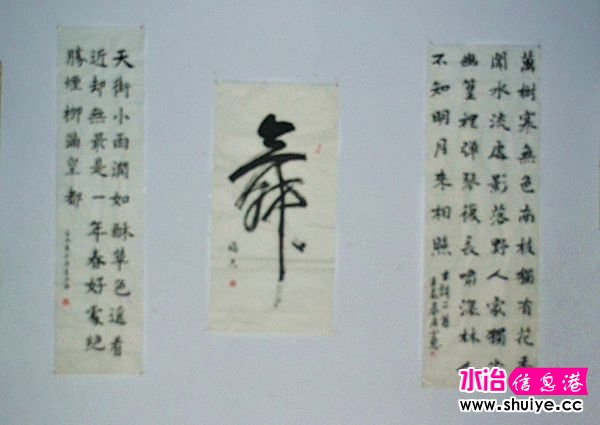 萬樹寒無色南枝獨有花香
聞水流處影落野人家獨坐
幽篁裡彈琴復長嘯深林人
不知明月來相照
古詩二首
舞
天街小雨潤如酥草色遥看
近却無最是一年春好處絕
勝煙柳滿皇都
水冶信息港
www.shuiye.cc